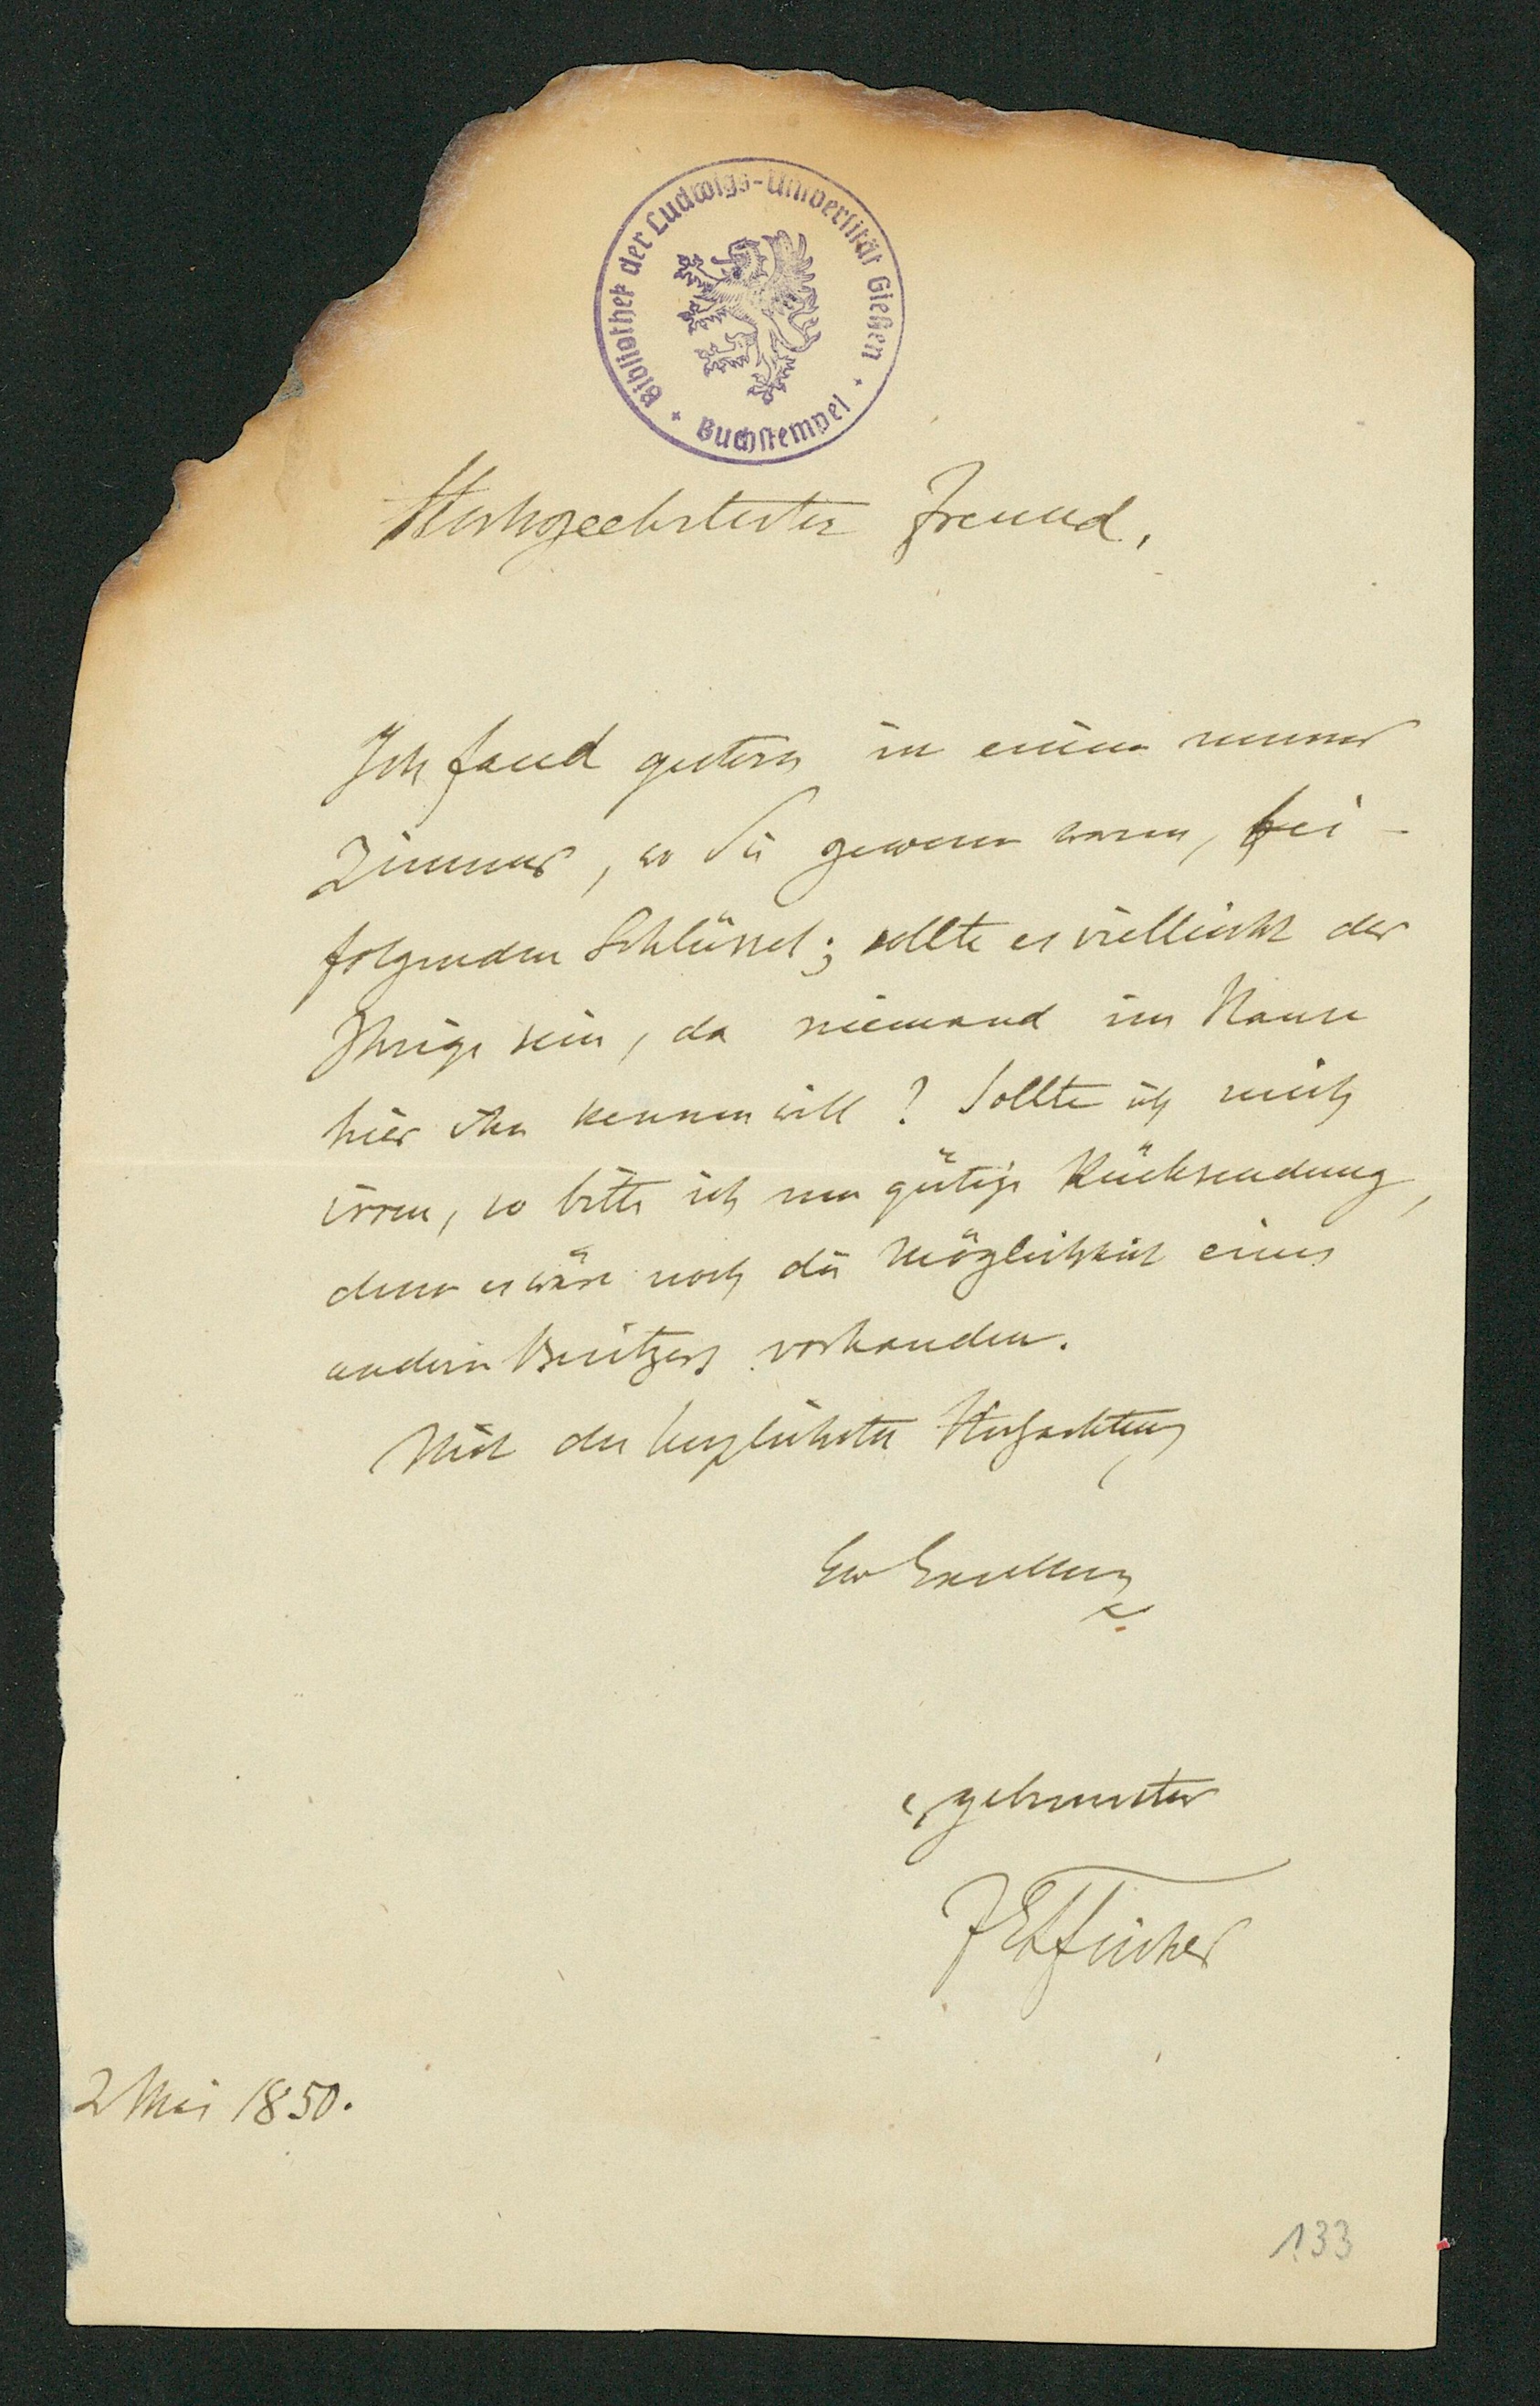 Bibliothek der Ludwigs-Universität Gießen
Buchstempel
Hochgeehrtester Freund,
Ich fand gestern in einem meiner
Zimmer, wo Sie gewesen waren, bei-
folgenden Schlüssel; sollte es vielleicht der
Ihrige sein, da niemand im Hause
hier ihn kennen will? Sollte ich mich
irren, so bitte ich um gütige Rücksendung,
denn es wäre noch die Möglichkeit eines
andern Besitzers vorhanden.
Mit der herzlichsten Hochachtung
Ew Excellenz
ergebenster
Fischer
2 Mai 1850.
133